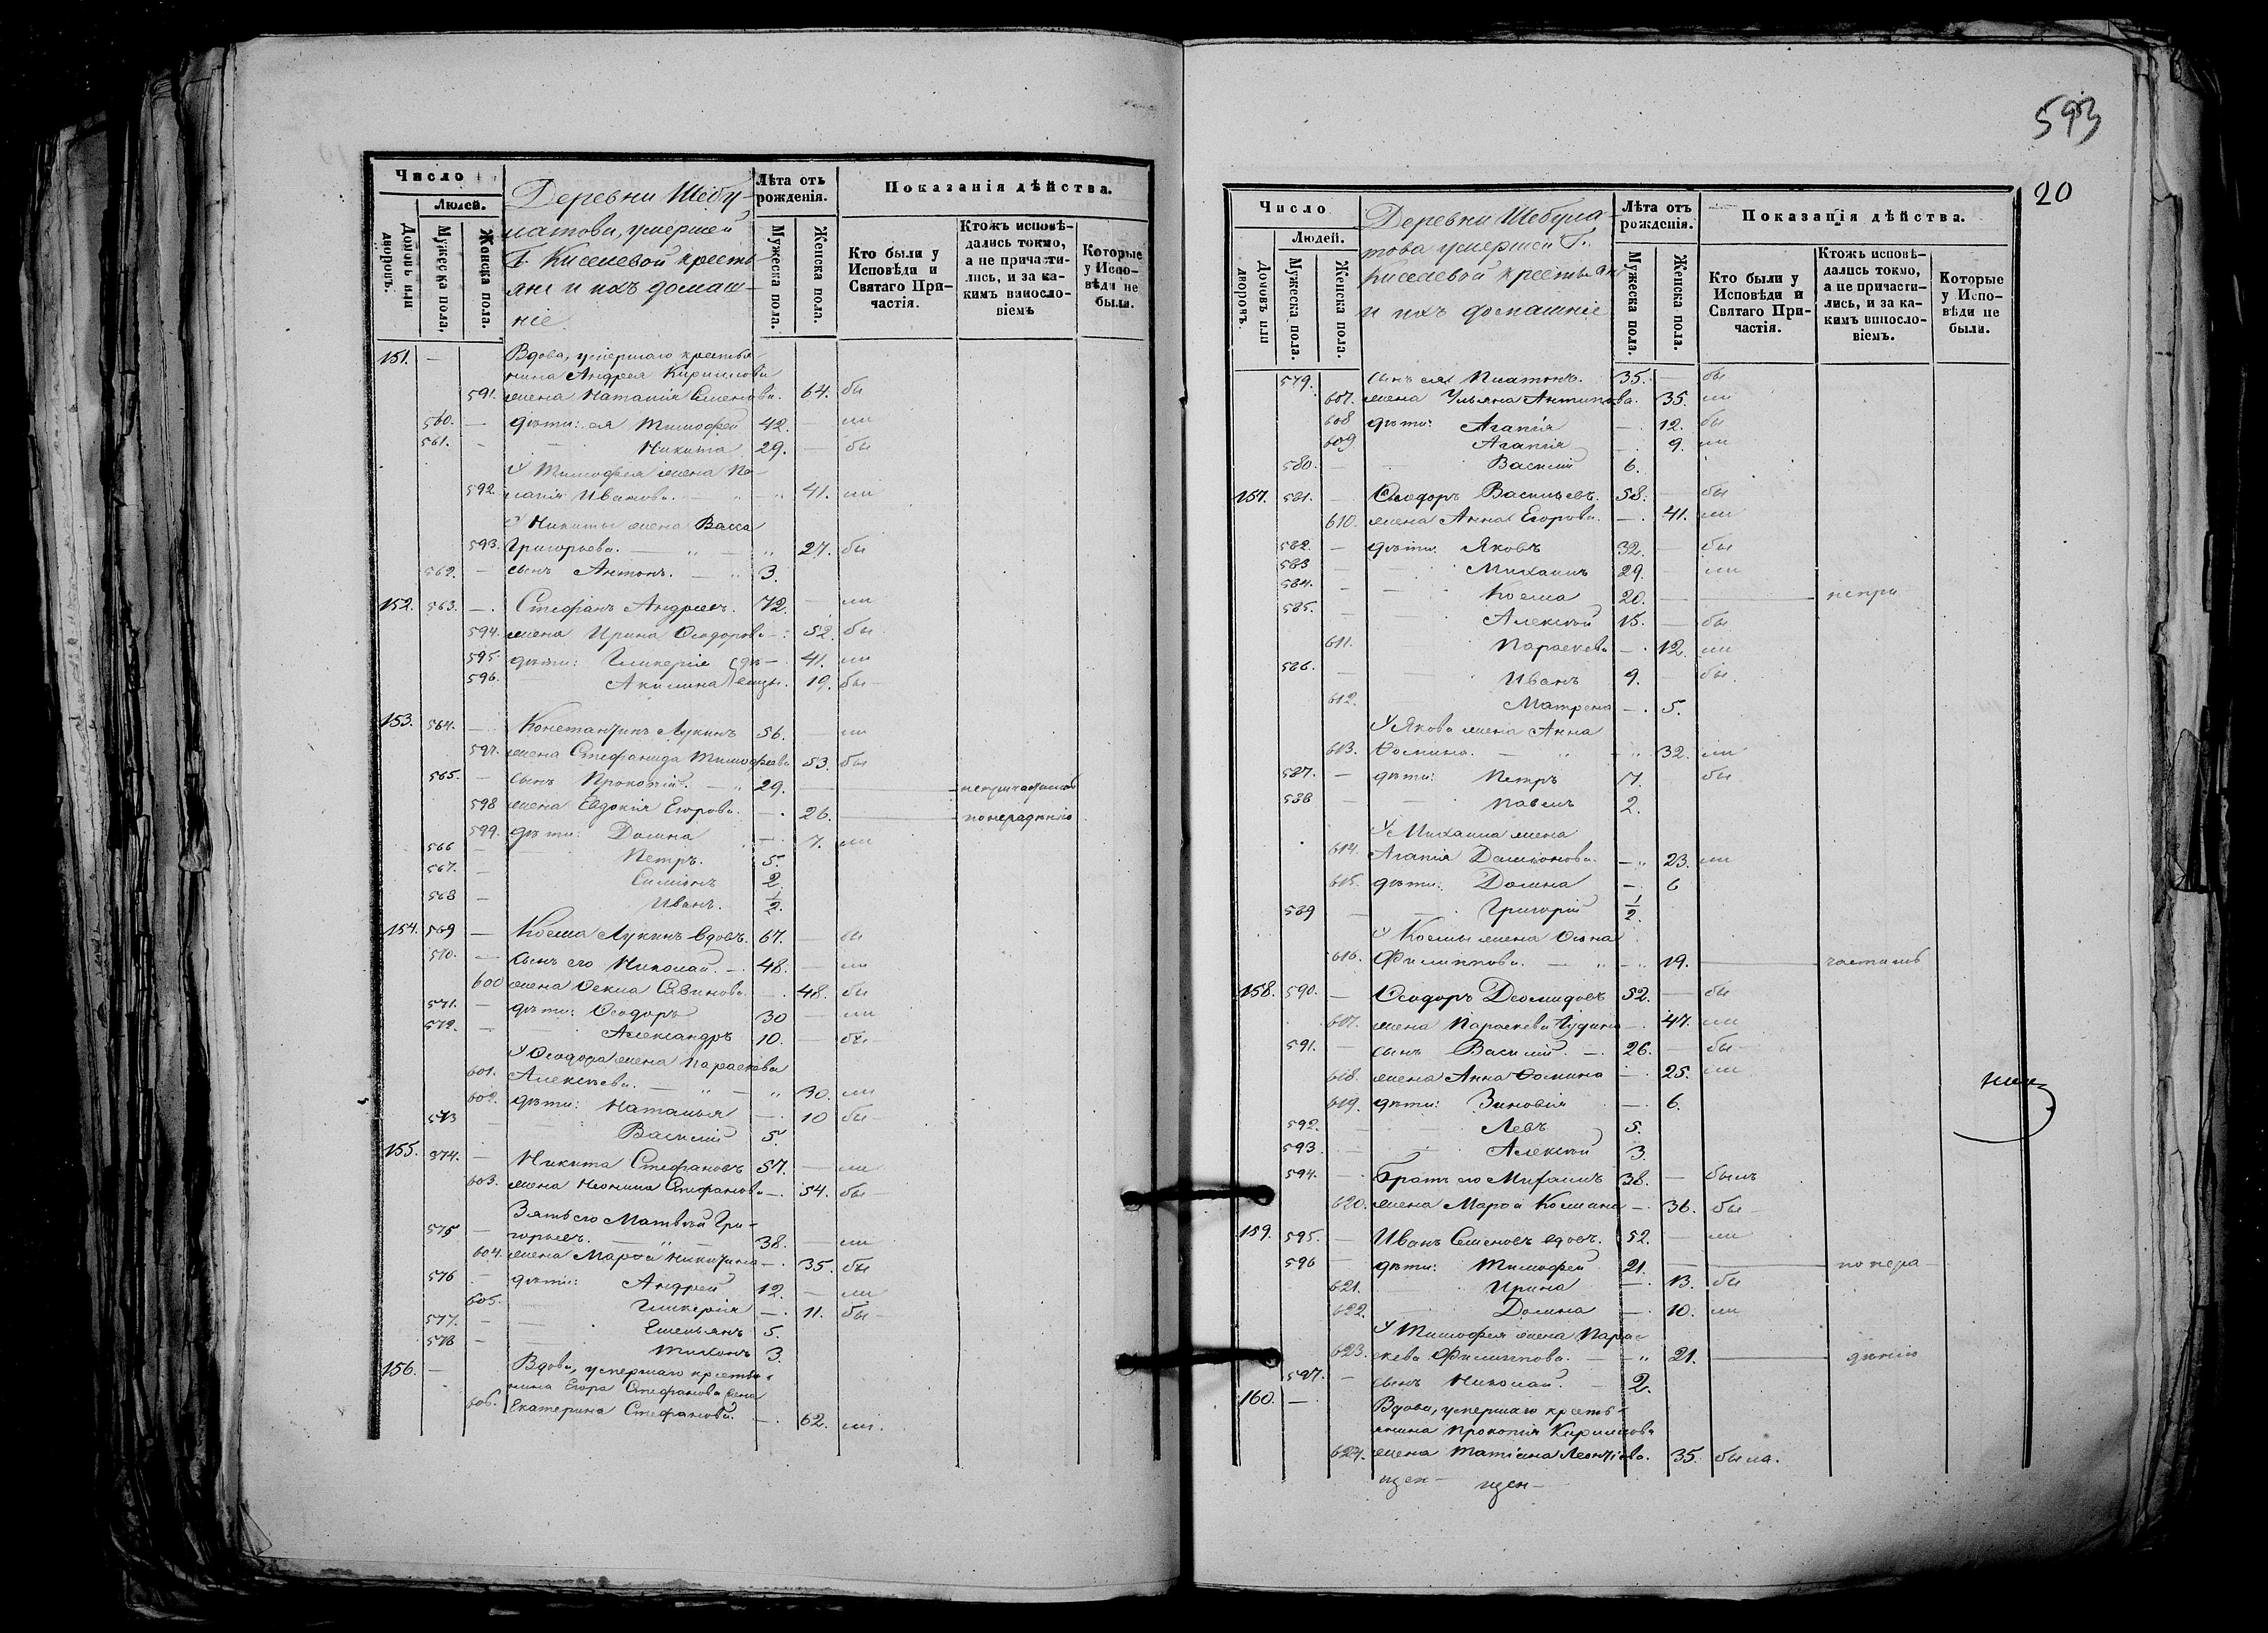 593
20
Число
Людей.
Домовъ или дворовъ.
Мужеска пола,
Женска пола.
Деревни Шебу-
матова, умершей
Г. Киселевой кресть-
яне и ихъ домаш-
ніе
Лѣта отъ рожденія.
Мужеска пола.
Женска пола.
Показанія дѣйства.
Кто были у Исповѣди и Святаго Причастія.
Ктожъ исповѣдались токмо, а не причастились, и за какимъ винословіемъ
Которые у Исповѣди не были.
151. — Вдова, умершаго крестья-
нина Андрея Кириллова
591. жена Наталія Семенова. 64. бы
560. — дѣти: ея Тимофей 42. — ли
561. — Никита 29. — бы
У Тимофея жена Пе-
592. лагія Иванова. — 41. ли
У Никиты жена Васса
593. Григорьева. — 27. бы
562. — сынъ Антонъ. — 3.
152. 563. — Стефанъ Андреевъ. 72. — ли
594. жена Ирина Ѳеодорова — 52. бы
595. дѣти: Гликерія (дѣ — 41. ли
596. Акилина) вицы. 19. бы
153. 564. — Константинъ Лукинъ 56. — ли
597. жена Стефанида Тимофеева 53. бы
565. — сынъ Прокопій. — 29. — непричастилс
598 жена Евдокія Егорова. — 26. — по нерадѣнію
599. дѣти: Домна — 7. ли
566 — Петръ. 5.
567. — Симіонъ 2.
568 — Иванъ. 1/2.
154. 569 — Косма Лукинъ вдовъ. 67. — бы
570. — сынъ его Николай. — 48. — ли
600 жена Ѳекла Савинова — 48. бы
571. — дѣти: Ѳеодоръ 30 — ли
572. — Александръ 10. — бы
У Ѳеодора жена Параскева
601. Алексѣева. — 30. ли
602. дѣти: Наталья — 10 бы
573 — Василій 5.
155. 574. — Никита Стефановъ 57. — ли
603. жена Неонила Стефанова — 54. бы
Зять его Матвѣй Гри-
575 — горьевъ. — 38. — ли
604. жена Марѳа Никитина — 35. бы
576 — дѣти: Андрей 12. — ли
605. Гликерія — 11. бы
577. — Емельянъ 5.
578 — Тихонъ 3.
156. — Вдова, умершаго крестья-
нина Егора Стефанова жена
606. Екатерина Стефанова. — 62. ли.
Число
Людей.
Домовъ или дворовъ.
Мужеска пола.
Женска пола.
Деревни Шебума-
това умершей Г.
Киселевой крестьяне
и ихъ домашніе
Лѣта отъ рожденія.
Мужеска пола.
Женска пола.
Показанія дѣйства.
Кто были у Исповѣди и Святаго Причастія.
Ктожъ исповѣдались токмо, а не причастились, и за какимъ винословіемъ.
Которые у Исповѣди не были.
579. сынъ ея Платонъ. 35. — бы
607. жена Ульяна Антипова. 35. ли
608 дѣти: Агапія — 12. бы
609 Агапія — 9. ли
580. — Василій 6.
157. 581. — Ѳеодоръ Васильевъ. 58. — бы
610. жена Анна Егорова. — 41. ли
582. — дѣти: Яковъ 32. — бы
583 — Михаилъ 29. — ли
584. — Косма 20. — непри
585. — Алексѣй 15. — бы
611. Параскева — 12. ли
586. — Иванъ 9. — бы.
612. Матрена — 5.
У Якова жена Анна
613. Ѳомина. — 32. ли
587. — дѣти: Петръ 7. бы
588 — Павелъ 2.
У Михаила жена
614. Агапія Даміонова. — 23. ли
615. дѣти: Домна — 6
589 — Григорій 1/2.
У Космы жена Анна
616. Филиппова. — 19. — частилъ
158. 590. — Ѳеодоръ Деомидовъ 52. — бы
617. жена Параскева Іудина — 47. ли
591. — сынъ Василій. — 26. — бы
618. жена Анна Ѳомина — 25. ли
619. дѣти: Зиновія — 6.
592. — Левъ 5.
593. — Алексѣй 3.
594. — братъ его Михаилъ 38. — былъ
620. жена Марѳа Космина — 36. бы
159. 595. — Иванъ Семеновъ вдовъ. 52. — ли
596 — дѣти: Тимофей 21. — по нера
621. Ирина — 13. бы
622. Домна — 10. ли
У Тимофея жена Парас-
623. кева Филиппова. — 21. — дѣнію
597. — сынъ Николай. — 2.
160. — Вдова, умершаго кресть-
янина Прокопія Кириллова
624. жена Татіана Леонтіева. 35. была.